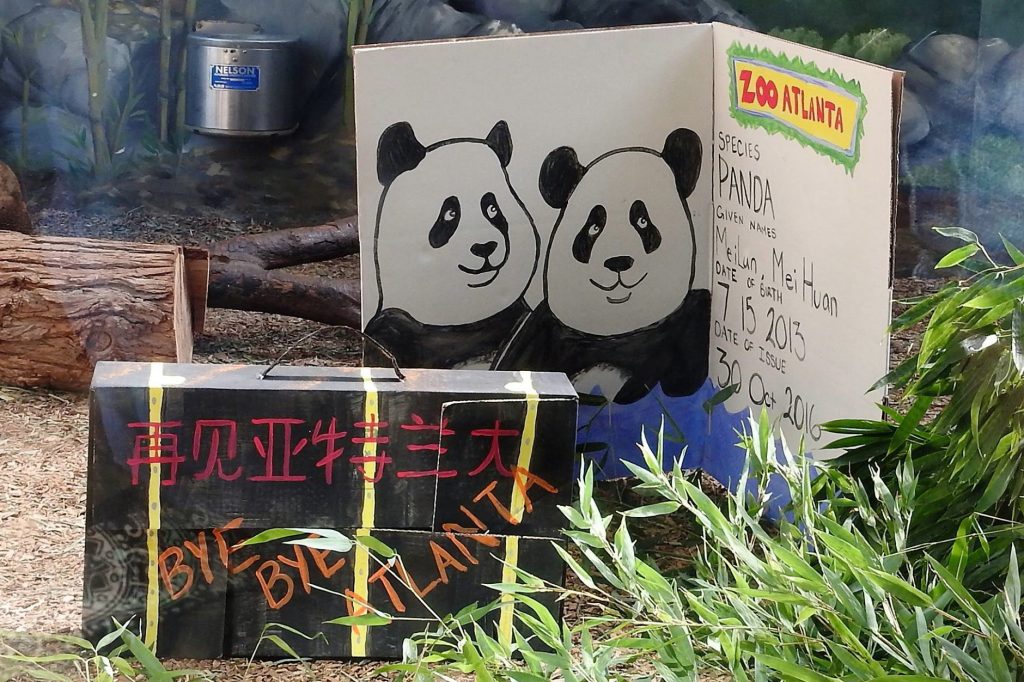 NELSON
ZOO ATLANTA
SPECIES
PANDA
GIVEN NAMES
MeiLun, Mei Huan
DATE OF BIRTH
7 15 2013
DATE OF ISSUE
30 Oct 2016
再见亚特兰大
BYE BYE ATLANTA